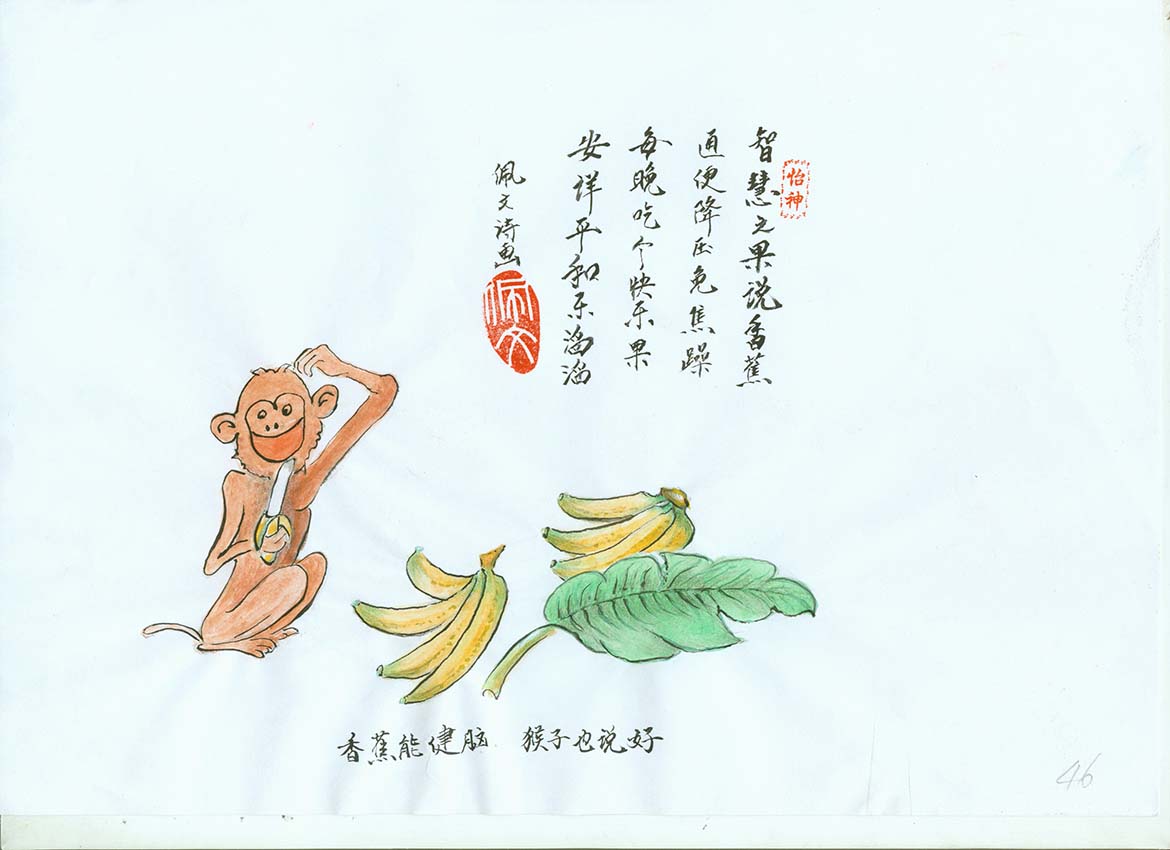 怡神
智慧之果说香蕉
通便降压免焦躁
每晚吃个快乐果
安详平和乐滔滔
佩文诗画
佩文
香蕉能健脑 猴子也说好
46